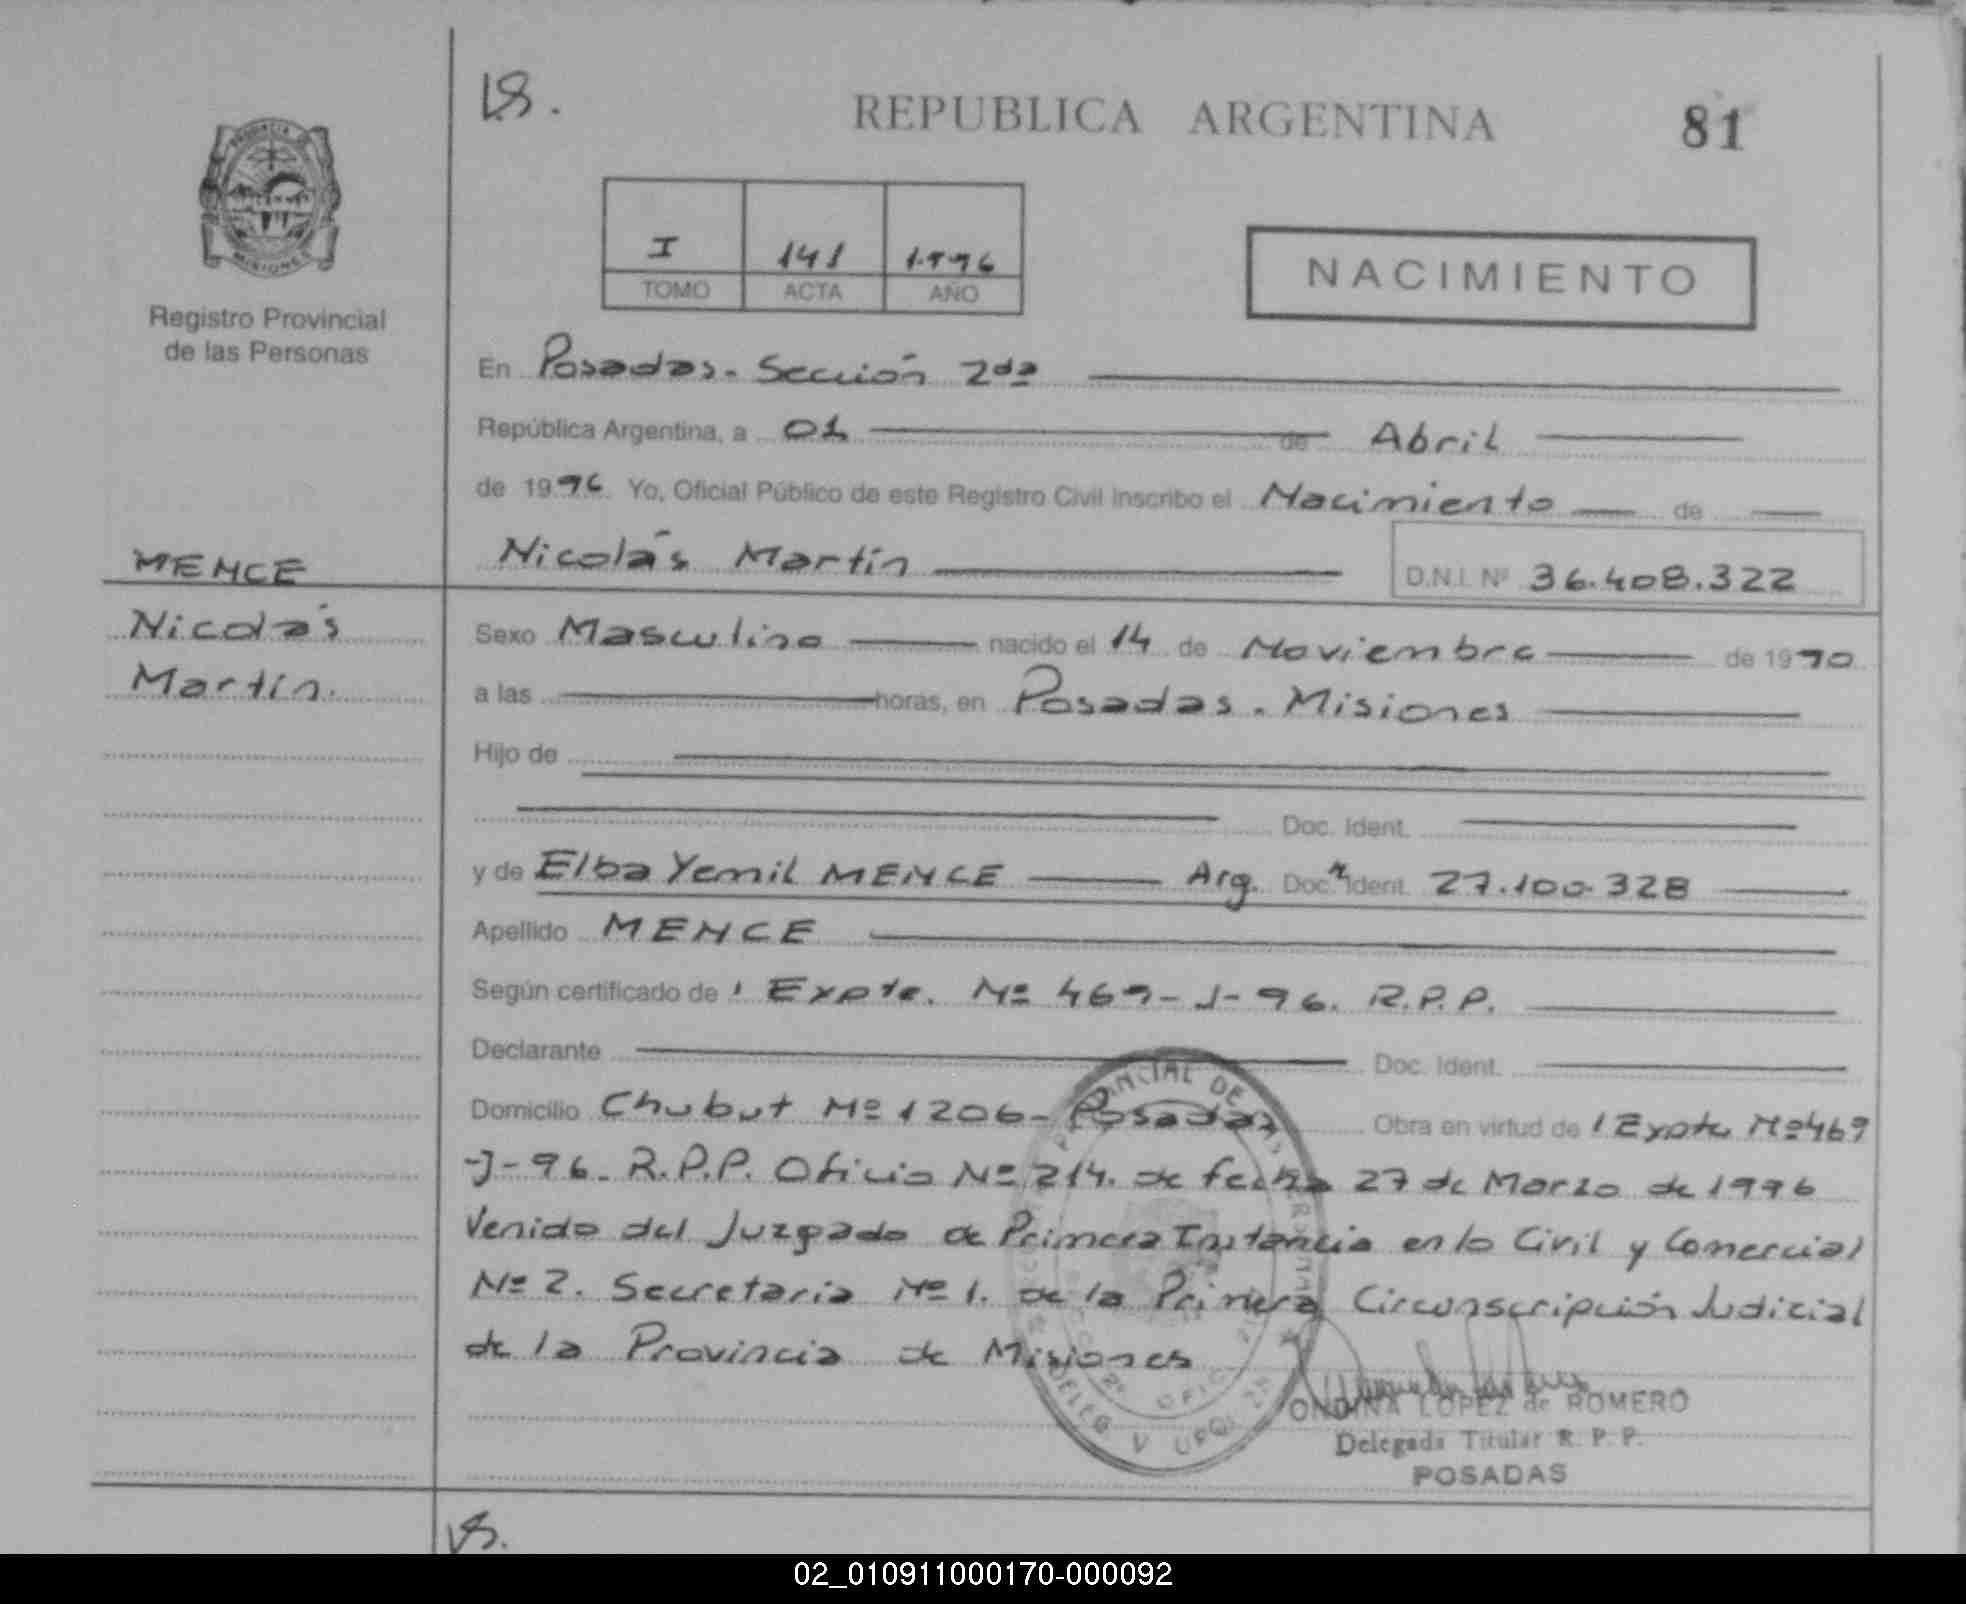 VS.
REPUBLICA ARGENTINA
81
PROVINCIA DE
MISIONES
Registro Provincial
de las Personas
I 141 1.996
TOMO ACTA AÑO
NACIMIENTO
En Posadas. Sección 2da
República Argentina, a 01 de Abril
de 1996 Yo, Oficial Público de este Registro Civil inscribo el Nacimiento de
MENCE
Nicolás Martín D.N.I. Nº 36.408.322
Nicolás
Martín.
Sexo Masculino nacido el 14 de Noviembre de 1990
a las horas, en Posadas. Misiones
Hijo de
Doc. Ident.
y de Elba Yemil MENCE Arg. Doc. Ident. 27.100.328
Apellido MENCE
Según certificado de Expte. Nº 469-J-96. R.P.P.
Declarante Doc. Ident.
Domicilio Chubut Nº 1206- Posadas Obra en virtud de Expte Nº469
-J-96. R.P.P. Oficio Nº 214. de fecha 27 de Marzo de 1996
Venido del Juzgado de Primera Instancia en lo Civil y Comercial
Nº 2. Secretaria Nº 1. de la Primera Circunscripción Judicial
de la Provincia de Misiones
ONDINA LOPEZ de ROMERO
Delegada Titular R. P. P.
POSADAS
VS.
02_010911000170-000092